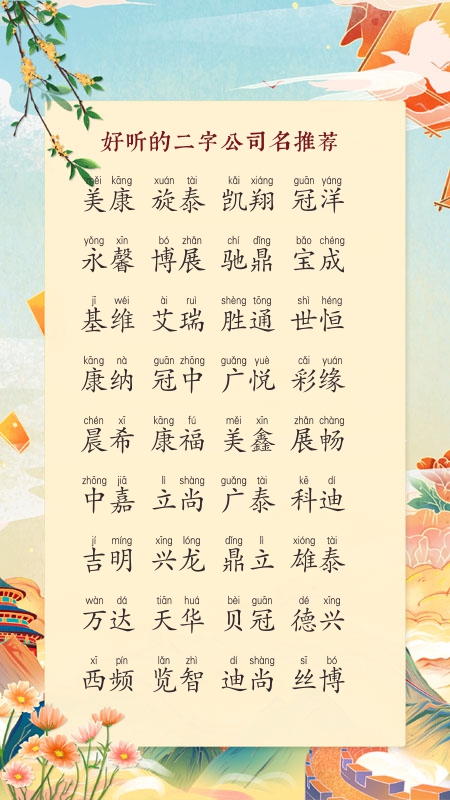 好听的二字公司名推荐
měi kāng xuán tài kǎi xiáng guān yáng
美康 旋泰 凯翔 冠洋
yǒng xīn bó zhǎn chí dǐng bǎo chéng
永馨 博展 驰鼎 宝成
jī wéi ài ruì shèng tōng shì héng
基维 艾瑞 胜通 世恒
kāng nà guān zhōng guǎng yuè cǎi yuán
康纳 冠中 广悦 彩缘
chén xī kāng fú měi xīn zhǎn chàng
晨希 康福 美鑫 展畅
zhōng jiā lì shàng guǎng tài kē dí
中嘉 立尚 广泰 科迪
jí míng xīng lóng dǐng lì xióng tài
吉明 兴龙 鼎立 雄泰
wàn dá tiān huá bèi guān dé xīng
万达 天华 贝冠 德兴
xī pín lǎn zhì dí shàng sī bó
西频 览智 迪尚 丝博